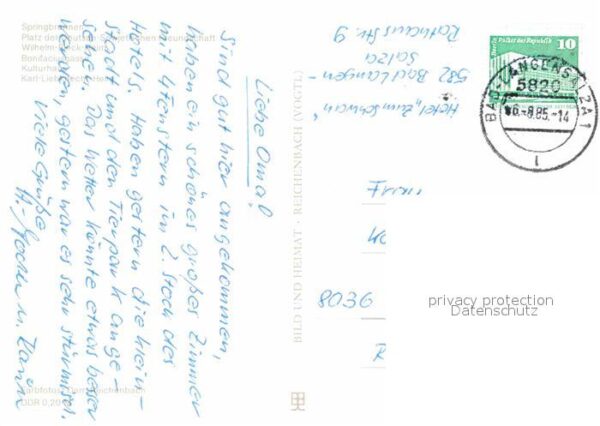 Springbrunnen
Platz der Deutsch-Sowjetischen Freundschaft
Wilhelm-Pieck-
Bonifacius
Kulturhaus
Karl-Liebknecht-
Liebe Oma!
Sind gut hier angekommen,
haben ein schönes großes Zimmer
mit 4 Fenstern im 2. Stock des
Hotels. Haben gestern die Klein-
stadt und den Tierpark ange-
sehen. Das Wetter könnte etwas besser
werden, gestern war es sehr stürmisch.
Viele Grüße
H.-Jochen u.
Reichenbach
DDR 0,20
BILD UND HEIMAT · REICHENBACH (VOGTL)
Hotel "Zum Schwan"
582 Bad Langen-
Salza
Rathausstr. 9
10
BAD LANGENSALZA 1
5820
-8.85.-14
8036
privacy protection
Datenschutz